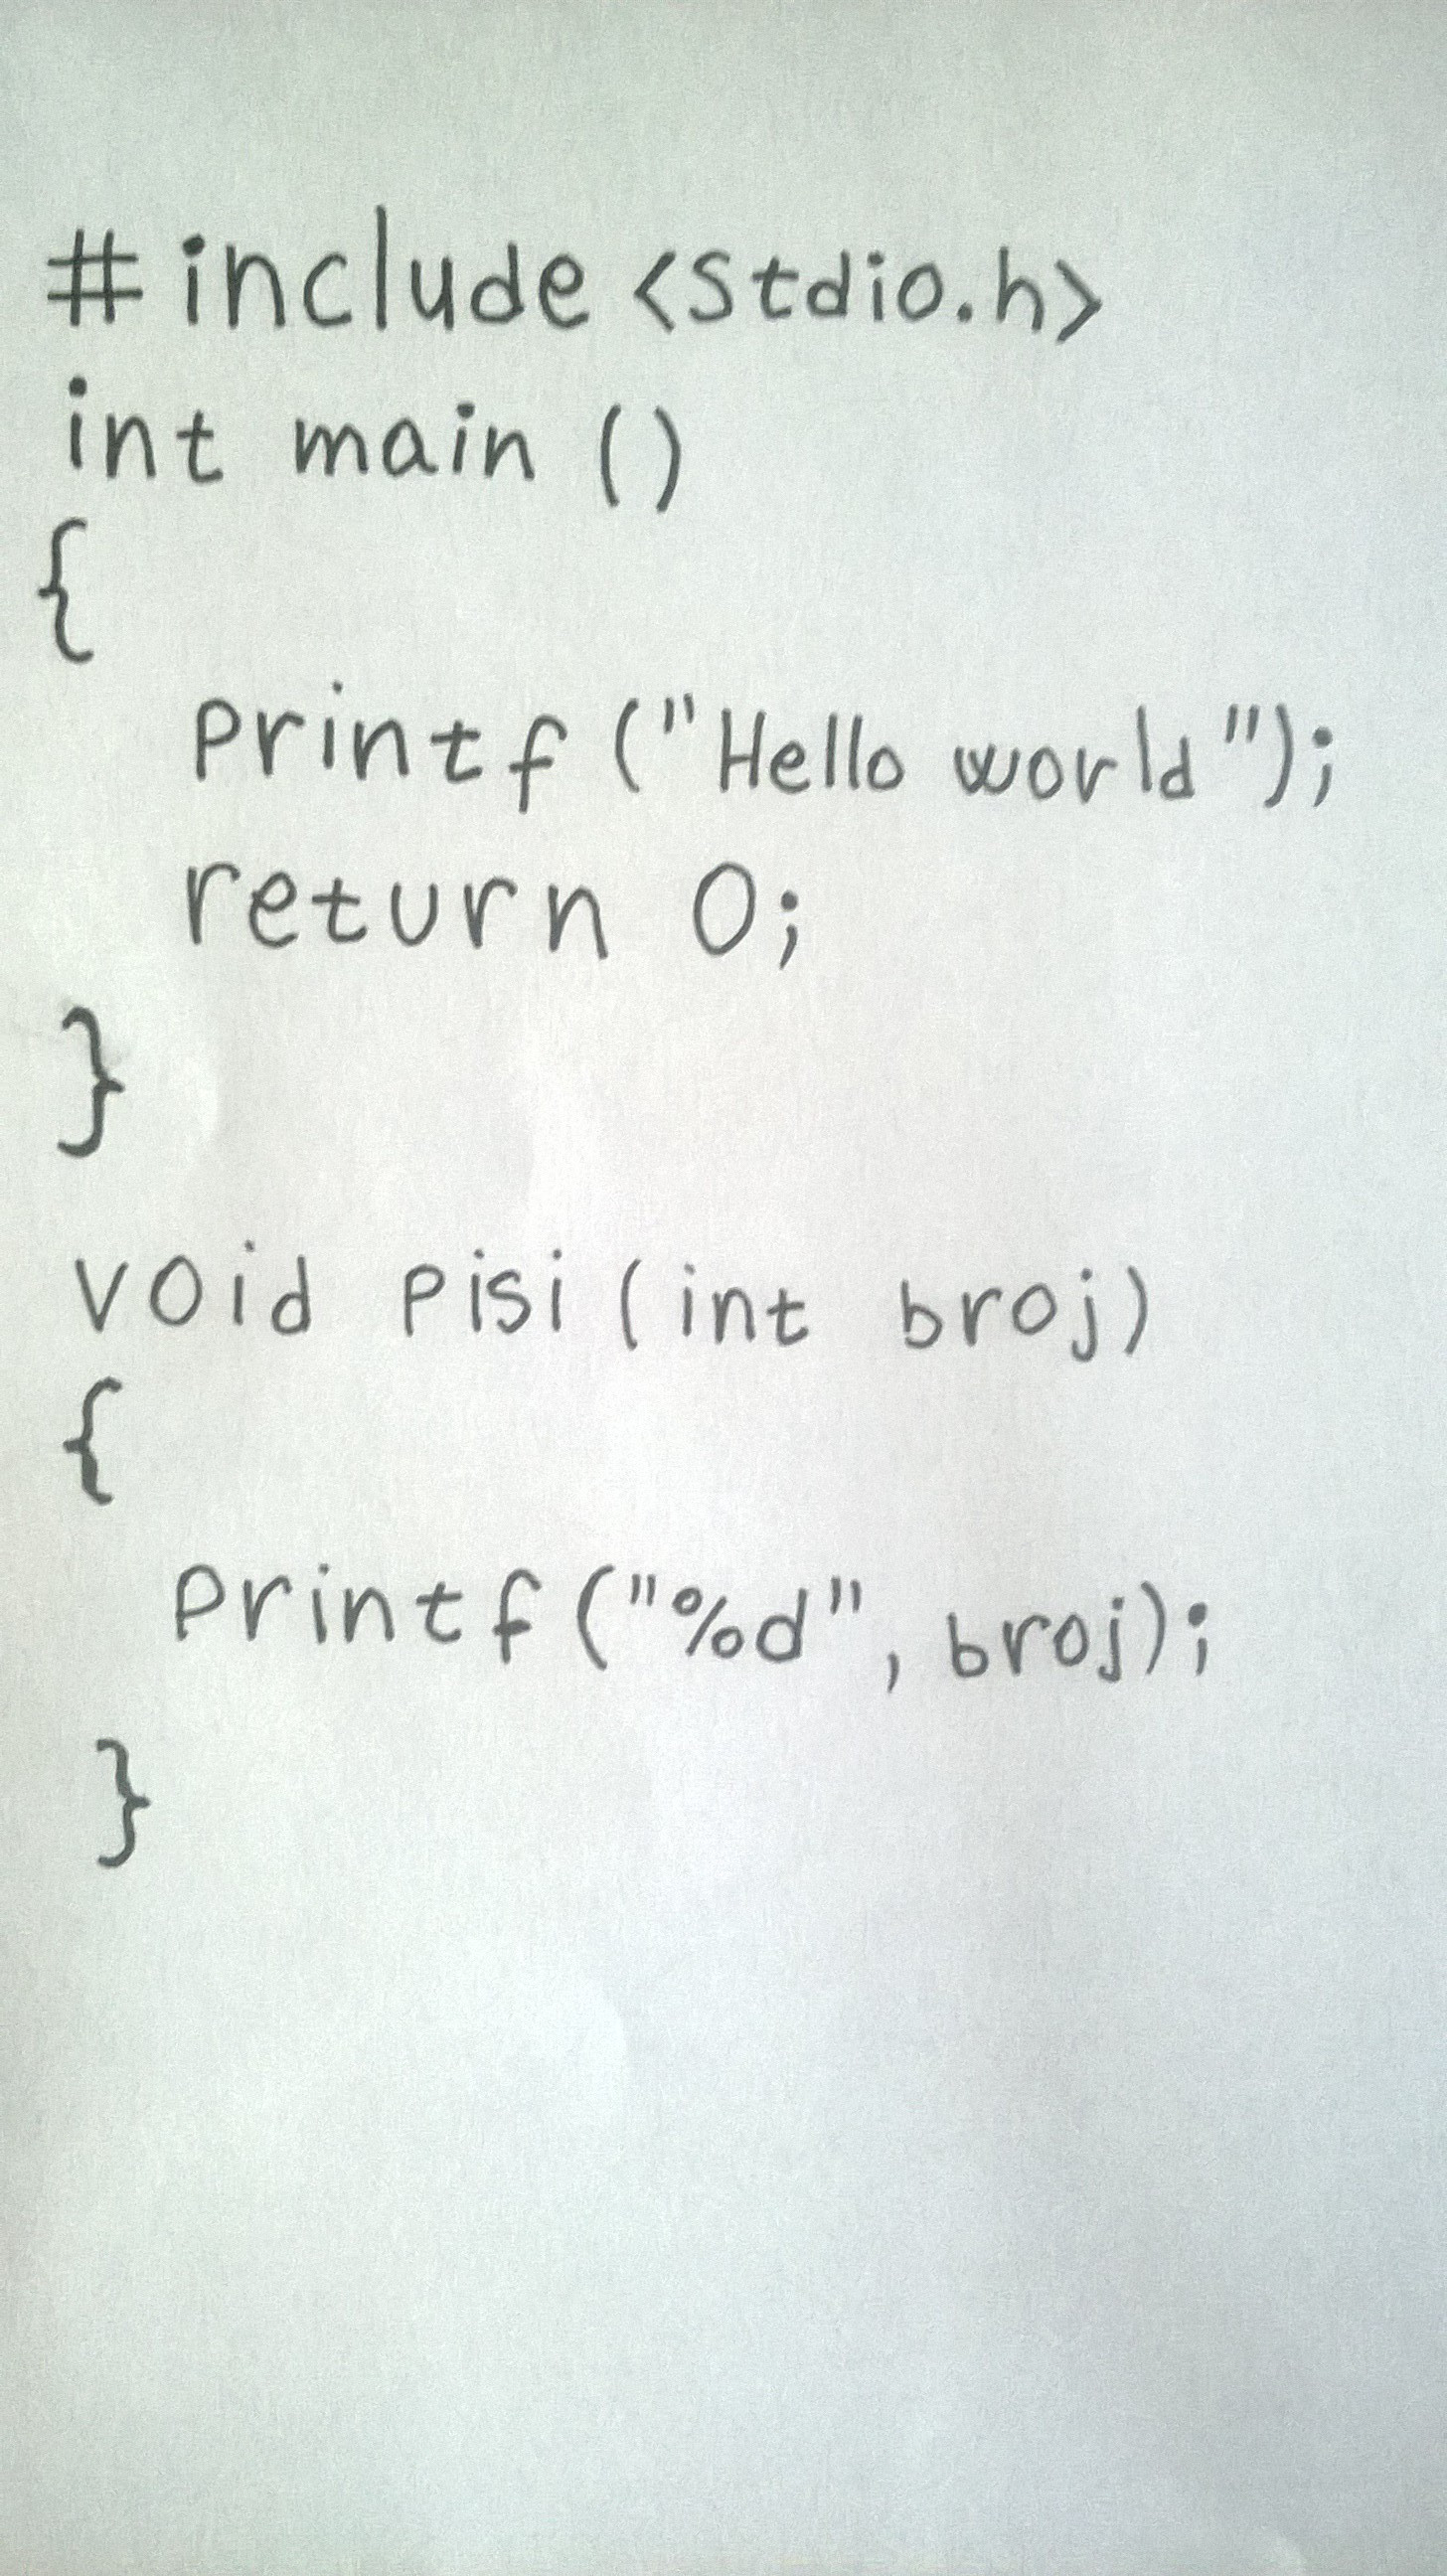 #include <stdio.h>
int main ()
{
printf ("Hello world");
return 0;
}
void pisi (int broj)
{
printf ("%d", broj);
}